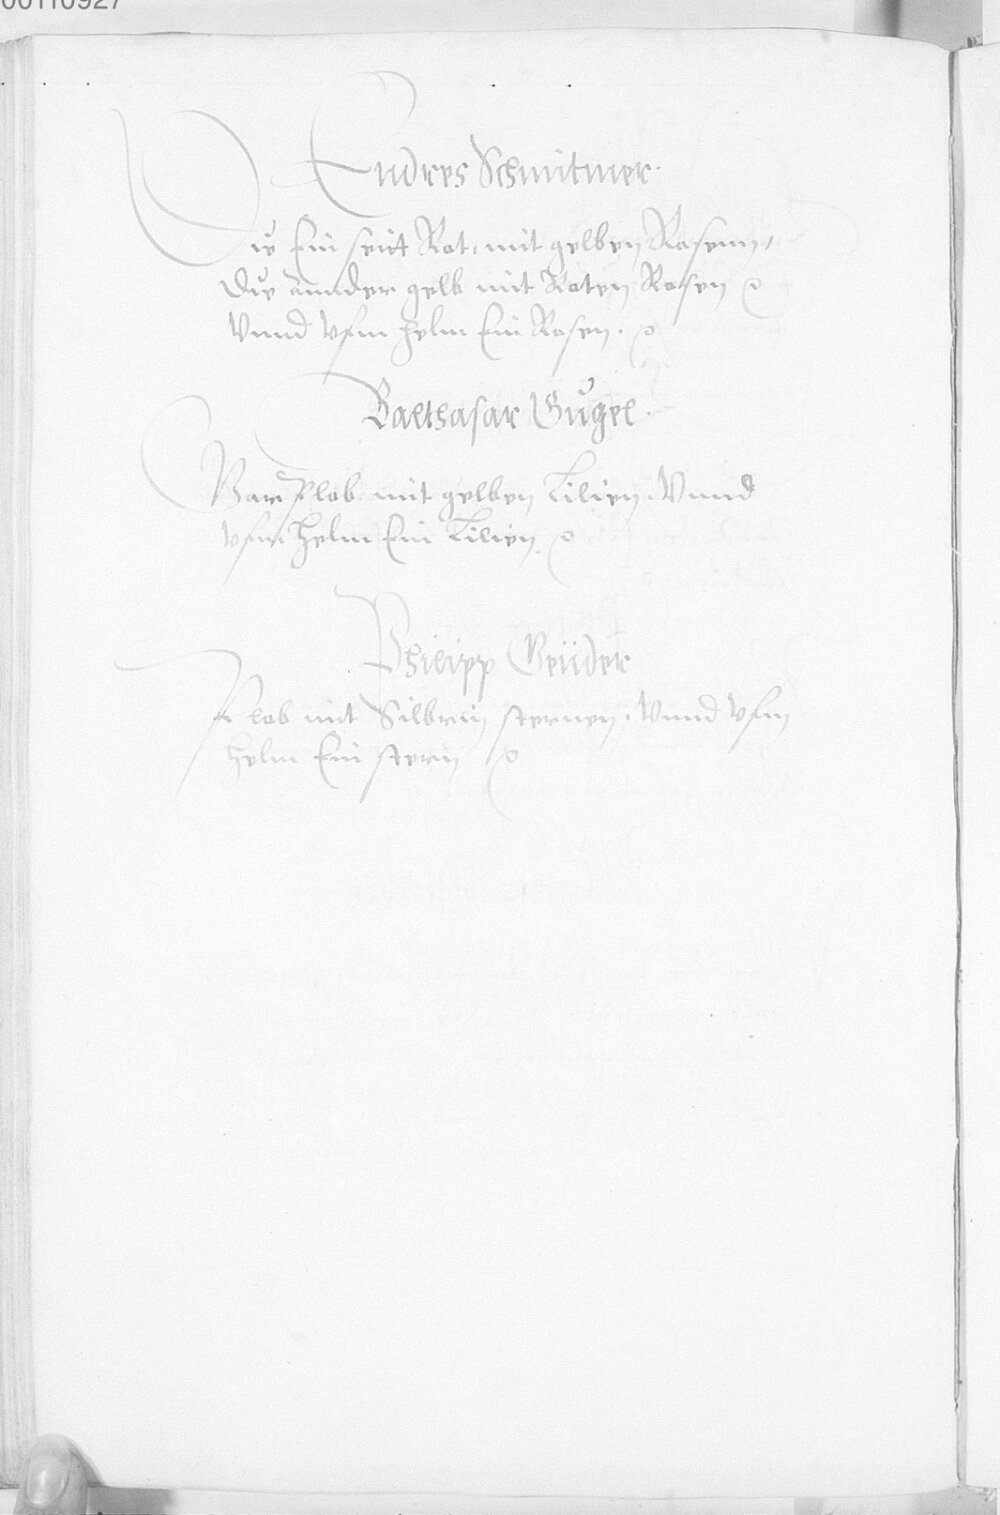 00110927
Endres Schmitmer.
Die Ein seitt Rot, mit gelben Rosenn,
Die annder gelb mit Roten Rosen
Vnnd vfm helm Ein Rosen.
Balthasar Gugel.
War Plob mit gelben Lilien. Vnnd
vfm helm Ein Lilien.
Philipp Geüder
Plob mit Silbrin sternen. Vnnd vfm
helm Ein stern